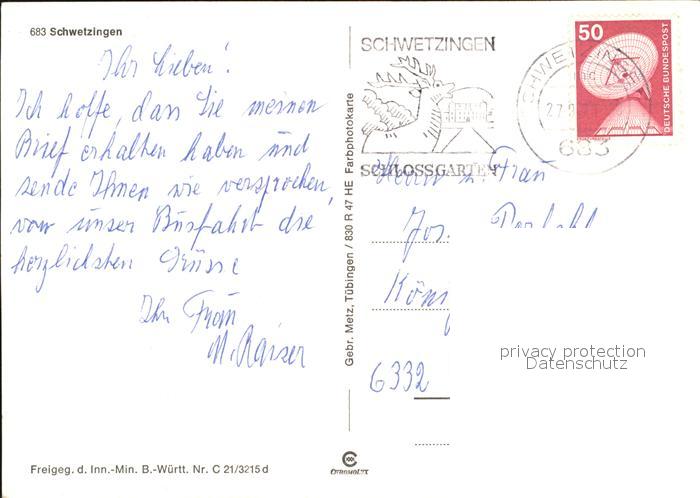 683 Schwetzingen
Ihr Lieben!
Ich hoffe, dass Sie meinen
Brief erhalten haben und
sende Ihnen wie versprochen,
von unser Busfahrt die
herzlichsten Grüsse
Ihr Frau
M. Raiser
Freigeg. d. Inn.-Min. B.-Württ. Nr. C 21/3215 d
Gebr. Metz, Tübingen / 830 R 47 HE Farbphotokarte
CHROMOLUX
SCHWETZINGEN
SCHLOSSGARTEN
683
50
DEUTSCHE BUNDESPOST
Herrn u. Frau
Jos.
Köni
6332
privacy protection
Datenschutz